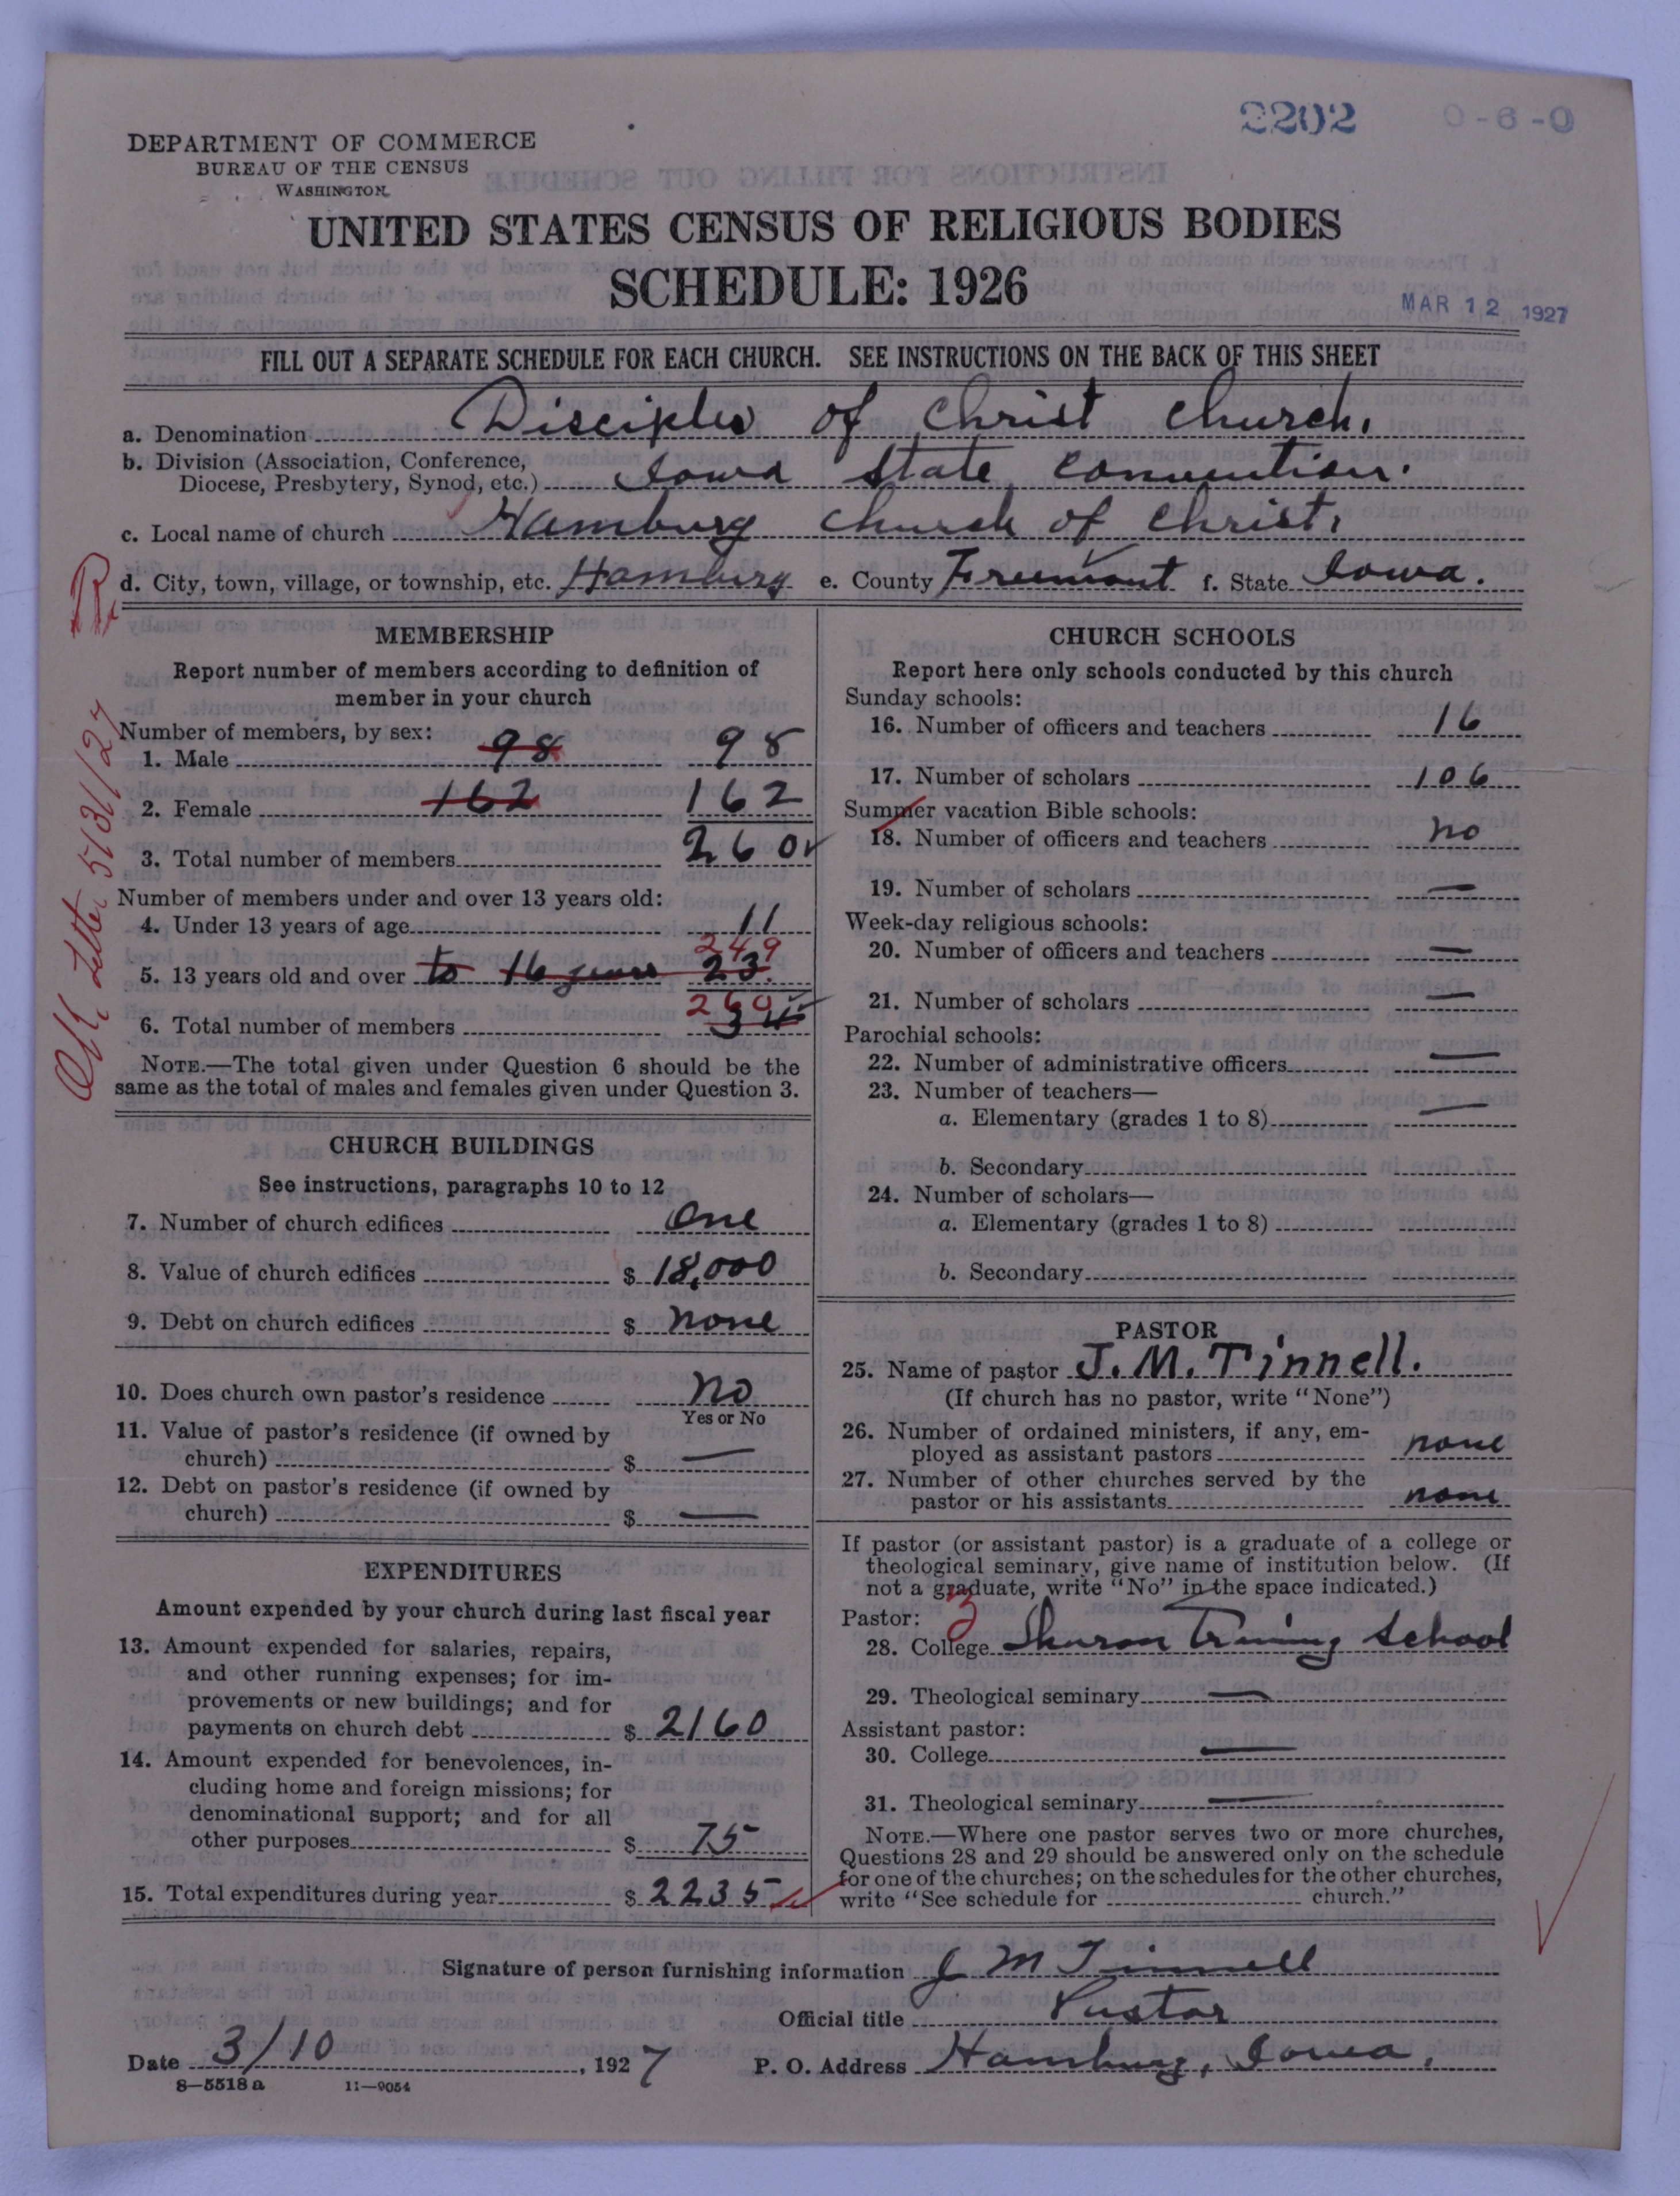 2202 0-6-0
DEPARTMENT OF COMMERCE
BUREAU OF THE CENSUS
WASHINGTON
UNITED STATES CENSUS OF RELIGIOUS BODIES
SCHEDULE: 1926
MAR 12 1927
FILL OUT A SEPARATE SCHEDULE FOR EACH CHURCH. SEE INSTRUCTIONS ON THE BACK OF THIS SHEET
a. Denomination Disciples of Christ Church.
b. Division (Association, Conference,
Diocese, Presbytery, Synod, etc.) Iowa State Convention.
c. Local name of church Hamburg Church of Christ.
d. City, town, village, or township, etc. Hamburg e. County Freemont f. State Iowa.
MEMBERSHIP
Report number of members according to definition of
member in your church
Number of members, by sex:
1. Male 98 98
2. Female 162 162
3. Total number of members 260
Number of members under and over 13 years old:
4. Under 13 years of age 11
249
5. 13 years old and over to 16 years 23
260
6. Total number of members 34
NOTE.—The total given under Question 6 should be the
same as the total of males and females given under Question 3.
CHURCH BUILDINGS
See instructions, paragraphs 10 to 12
7. Number of church edifices One
8. Value of church edifices $ 18,000
9. Debt on church edifices $ none
10. Does church own pastor's residence No
Yes or No
11. Value of pastor's residence (if owned by
church) $ —
12. Debt on pastor's residence (if owned by
church) $ —
EXPENDITURES
Amount expended by your church during last fiscal year
13. Amount expended for salaries, repairs,
and other running expenses; for im-
provements or new buildings; and for
payments on church debt $ 2160
14. Amount expended for benevolences, in-
cluding home and foreign missions; for
denominational support; and for all
other purposes $ 75
15. Total expenditures during year $ 2235
CHURCH SCHOOLS
Report here only schools conducted by this church
Sunday schools:
16. Number of officers and teachers 16
17. Number of scholars 106
Summer vacation Bible schools:
18. Number of officers and teachers no
19. Number of scholars —
Week-day religious schools:
20. Number of officers and teachers —
21. Number of scholars —
Parochial schools:
22. Number of administrative officers —
23. Number of teachers—
a. Elementary (grades 1 to 8) —
b. Secondary
24. Number of scholars—
a. Elementary (grades 1 to 8)
b. Secondary
PASTOR
25. Name of pastor J. M. Tinnell.
(If church has no pastor, write "None")
26. Number of ordained ministers, if any, em-
ployed as assistant pastors none
27. Number of other churches served by the
pastor or his assistants none
If pastor (or assistant pastor) is a graduate of a college or
theological seminary, give name of institution below. (If
not a graduate, write "No" in the space indicated.)
Pastor:
28. College Training School
29. Theological seminary —
Assistant pastor:
30. College —
31. Theological seminary —
NOTE.—Where one pastor serves two or more churches,
Questions 28 and 29 should be answered only on the schedule
for one of the churches; on the schedules for the other churches,
write "See schedule for church."
Signature of person furnishing information J M Tinnell
Official title Pastor
Date 3/10, 1927 P. O. Address Hamburg, Iowa.
8—5518 a 11—9054
Letter 5/31/27